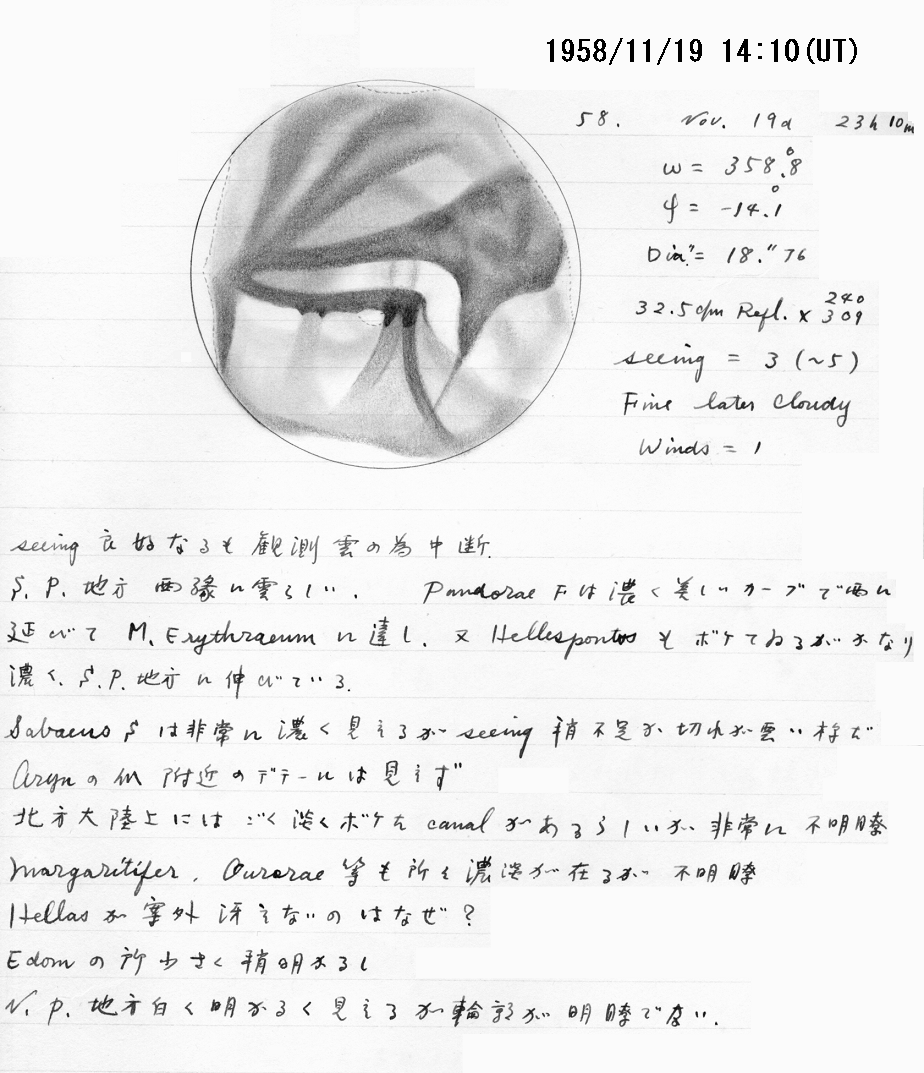 1958/11/19 14:10(UT)
58. Nov. 19d 23h 10m
ω = 358.°8
φ = -14.°1
Dia. = 18."76
32.5cm Refl. × 240 309
seeing = 3 (~5)
Fine later Cloudy
Winds = 1
seeing 良好なるも観測雲の為中断.
S. P. 地方 西縁に雲らしい. Pandorae F は濃く美しいカーブで西に
延びて M. Erythraeum に達し, 又 Hellespontus もボケてゐるがかなり
濃く, S. P. 地方に伸びている.
Sabaeus S は非常に濃く見えるが seeing 稍不足か切れが悪い様だ
Arynの 附近のデテールは見えず
北方大陸上にはごく淡くボケた canal があるらしいが 非常に不明瞭
Margaritifer, Aurorae 等も所々濃淡が在るが 不明瞭
Hellas が案外冴えないのはなぜ?
Edom の所少さく稍明かるし
N. P. 地方白く明かるく見えるが輪郭が明瞭でない.